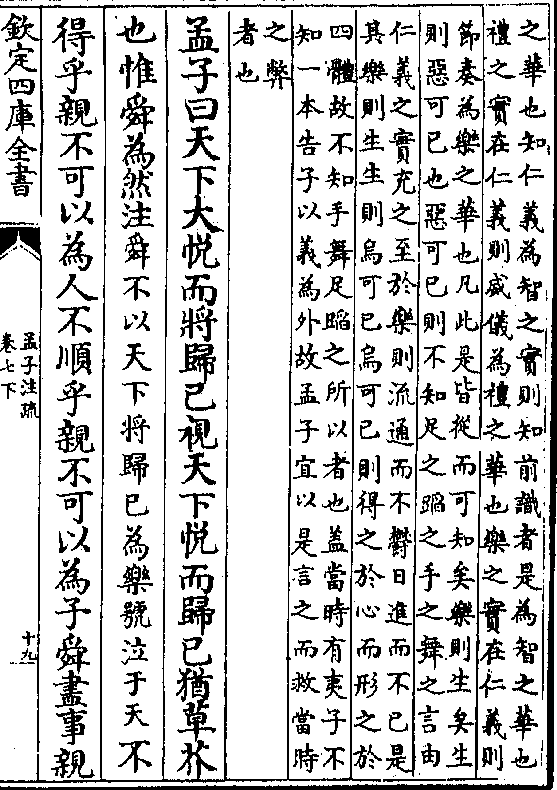 之華也知仁義為智之實則知前識者是為智之華也
禮之實在仁義則威儀為禮之華也樂之實在仁義則
節奏為樂之華也凡此是皆從而可知矣樂則生矣生
則惡可已也惡可已則不知足之蹈之手之舞之言由
仁義之實充之至於樂則流通而不鬱日進而不已是
其樂則生生則烏可已烏可已則得之於心而形之於
四體故不知手舞足蹈之所以者也盖當時有夷子不
知一本告子以義為外故孟子宜以是言之而救當時
之弊
者也
孟子曰天下大悦而將歸已視天下悦而歸已猶草芥
也惟舜為然注舜不以天下將歸已為樂號泣于天不
得乎親不可以為人不順乎親不可以為子舜盡事親
欽定四庫全書
孟子注疏
卷七下
十九